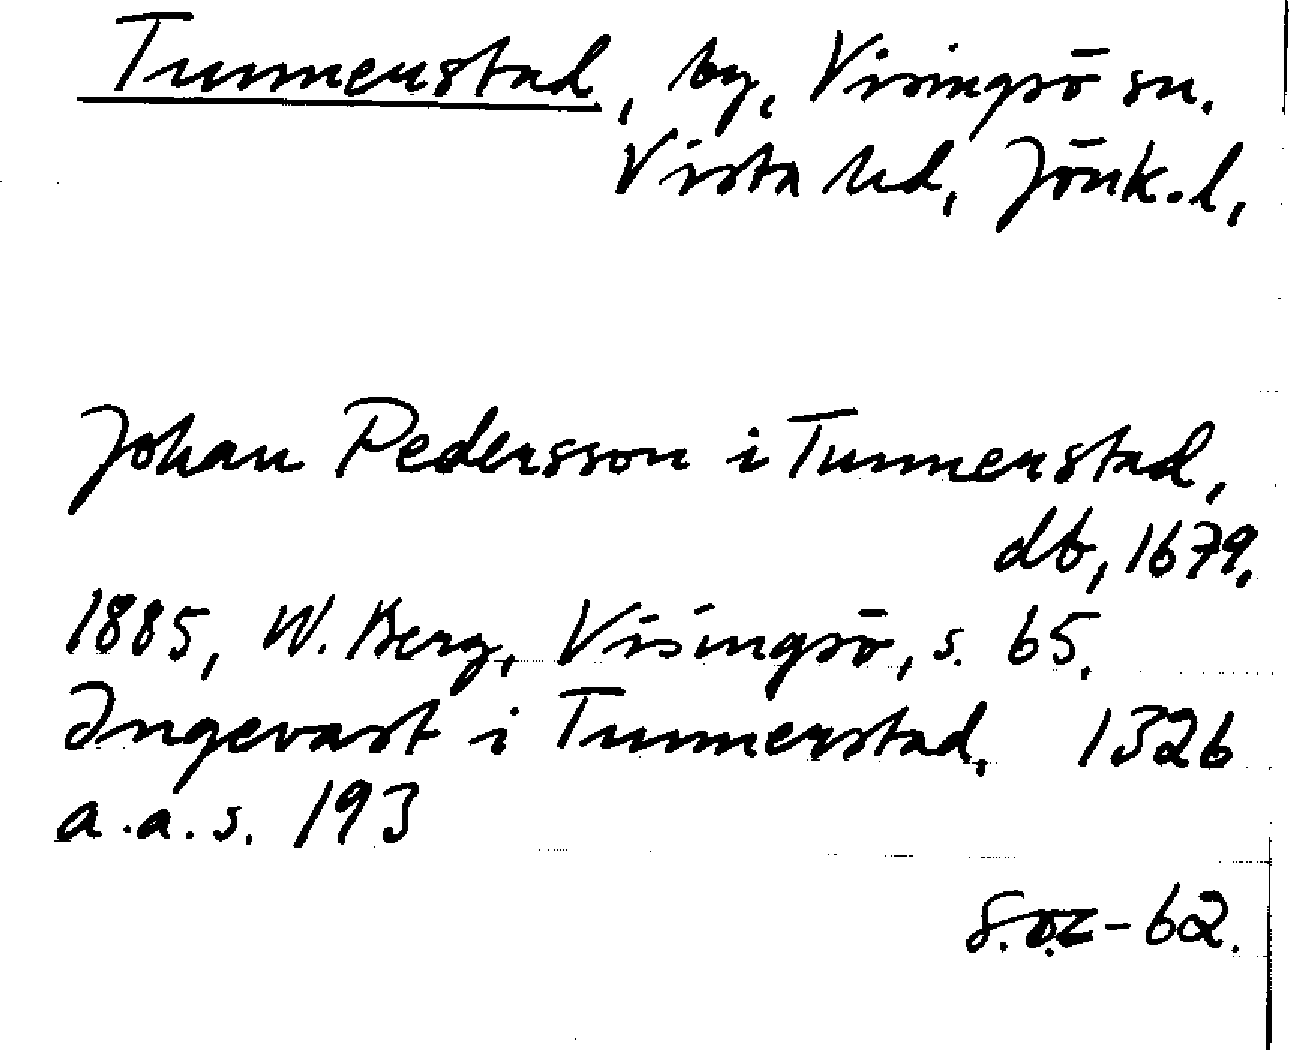 Tunnerstad, by, Visingsö sn.
Vista hd, Jönk.l,
Johan Pedersson i Tunnerstad,
db, 1679.
1885, W. Berg, Visingsö, s. 65.
Ingevast i Tunnerstad, 1326
a.a.s. 193
-62.